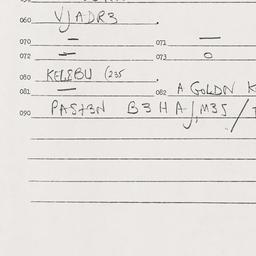 060 VJADR3 .
070 — 071 —
072 — 073 O
080 KELEBU (235
081 — 082 A GOLDN K
090 PAST3N B3HAJ,M35/